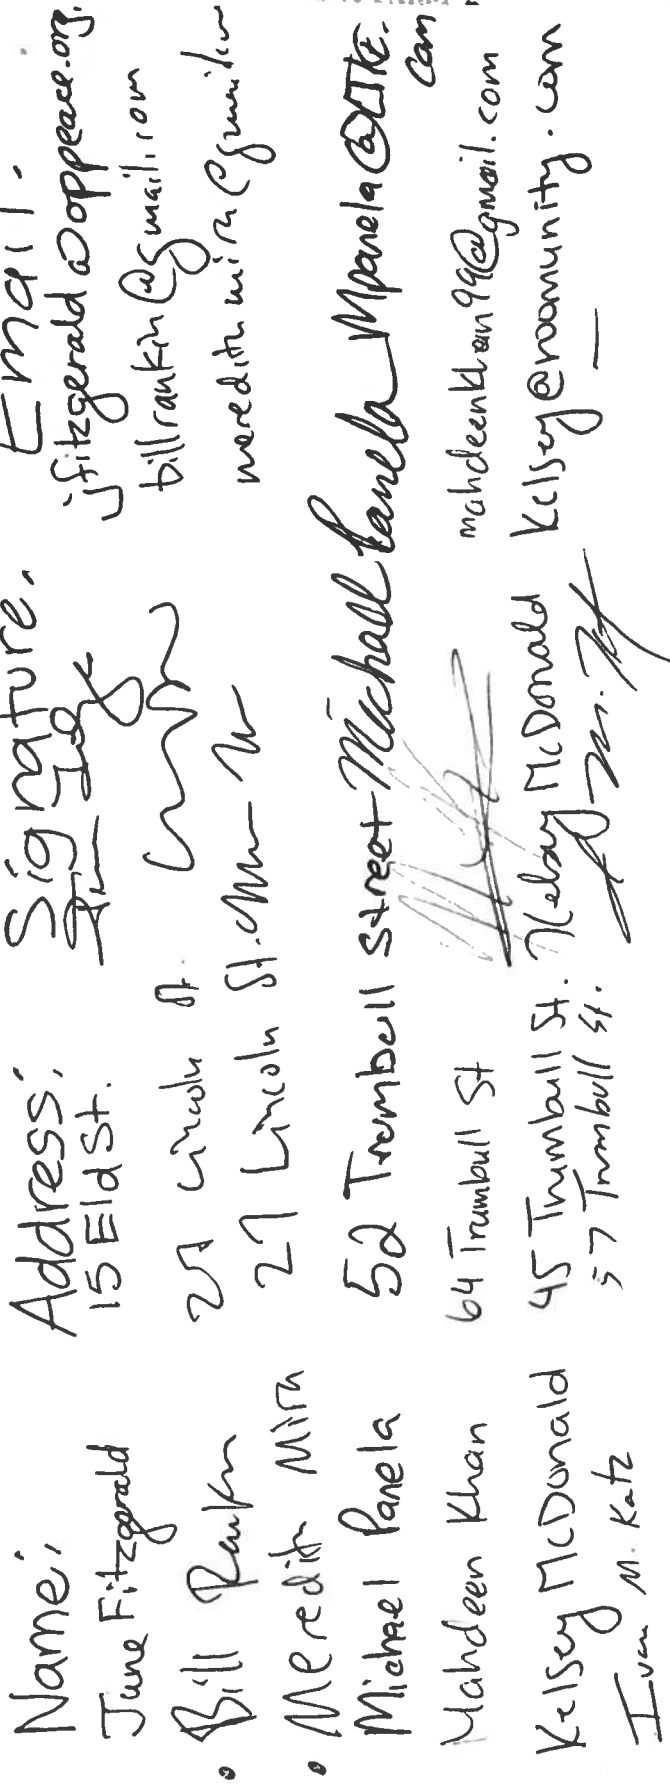 Name: Address: Signature. Email.
June Fitzgerald 15 Eld St. jfitzgerald@oppeace.org.
Bill Rankin 27 Lincoln St. billrankin@gmail.com
Meredith Mira 27 Lincoln St. meredith.mira@gmail.com
Michael Panela 52 Trumbull Street Michael Panela Mpanela@LIKE.com
Mahdeen Khan 64 Trumbull St mahdeenkhan99@gmail.com
Kelsey McDonald 45 Trumbull St. Kelsey McDonald Kelsey@noomunity.com
Ivan M. Katz 57 Trumbull St. —